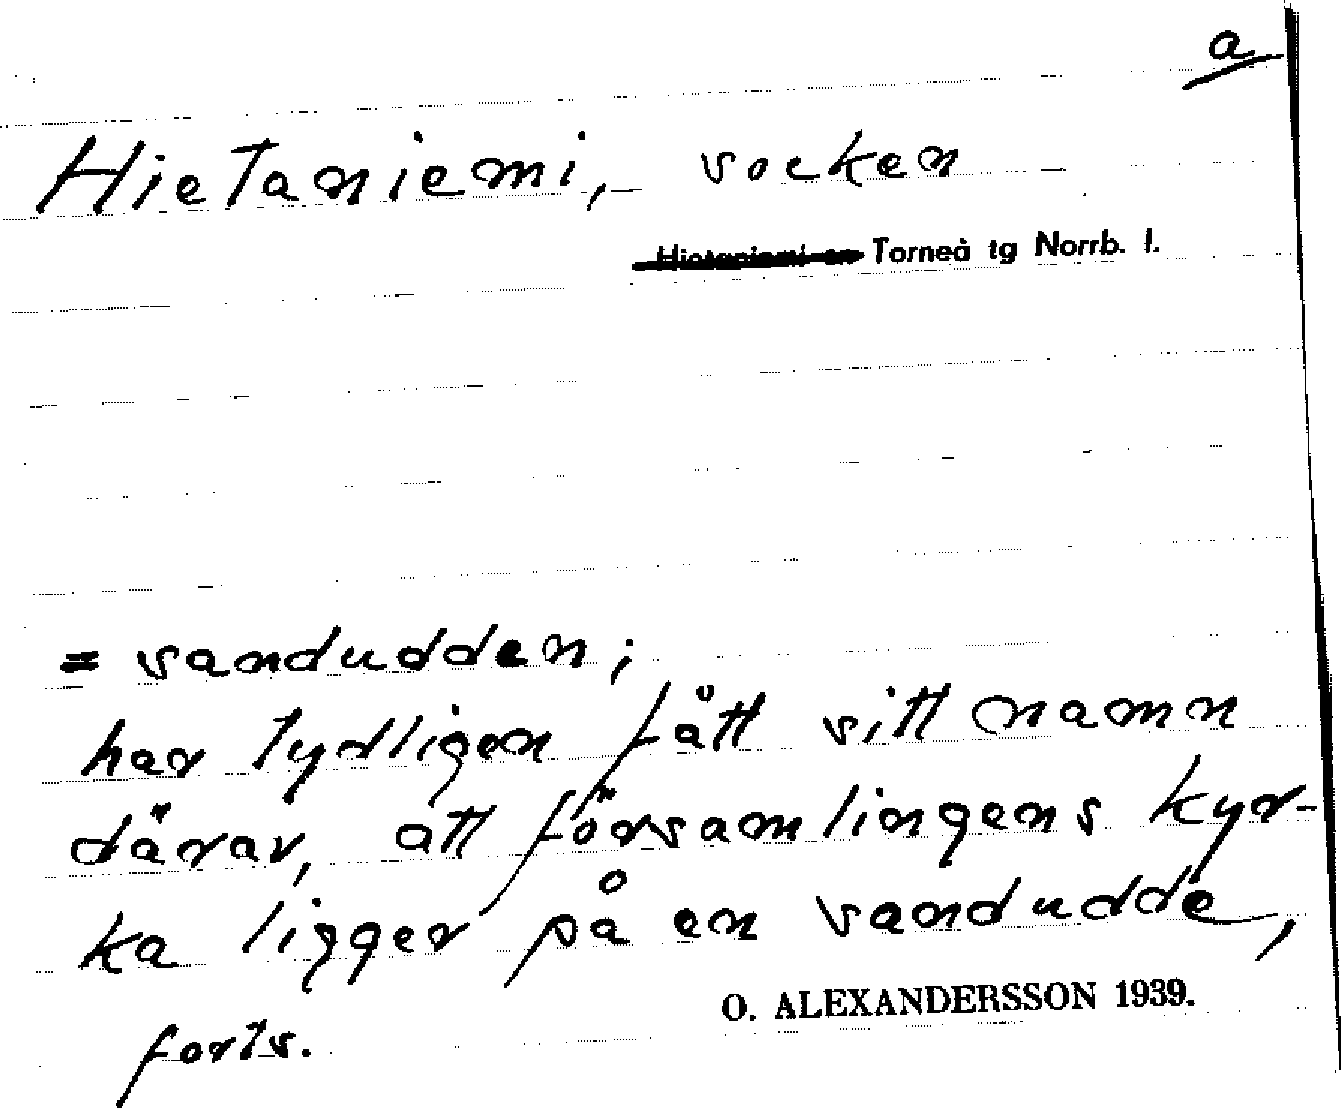 a
Hietaniemi, socken
Hietaniemi sn Torneå tg Norrb. l.
= sandudden;
har tydligen fått sitt namn
därav, att församlingens kyr-
ka ligger på en sandudde,
forts.
O. ALEXANDERSSON 1939.